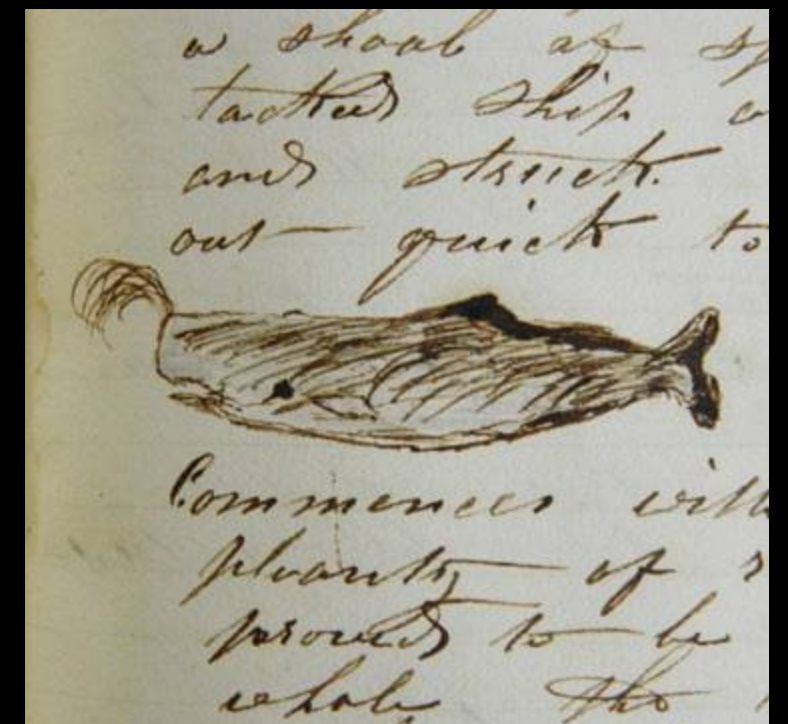 a shoal of sp
tacked ship a
and struck.
out quick to
Commences with
pleanty of s
proved to be
whale the